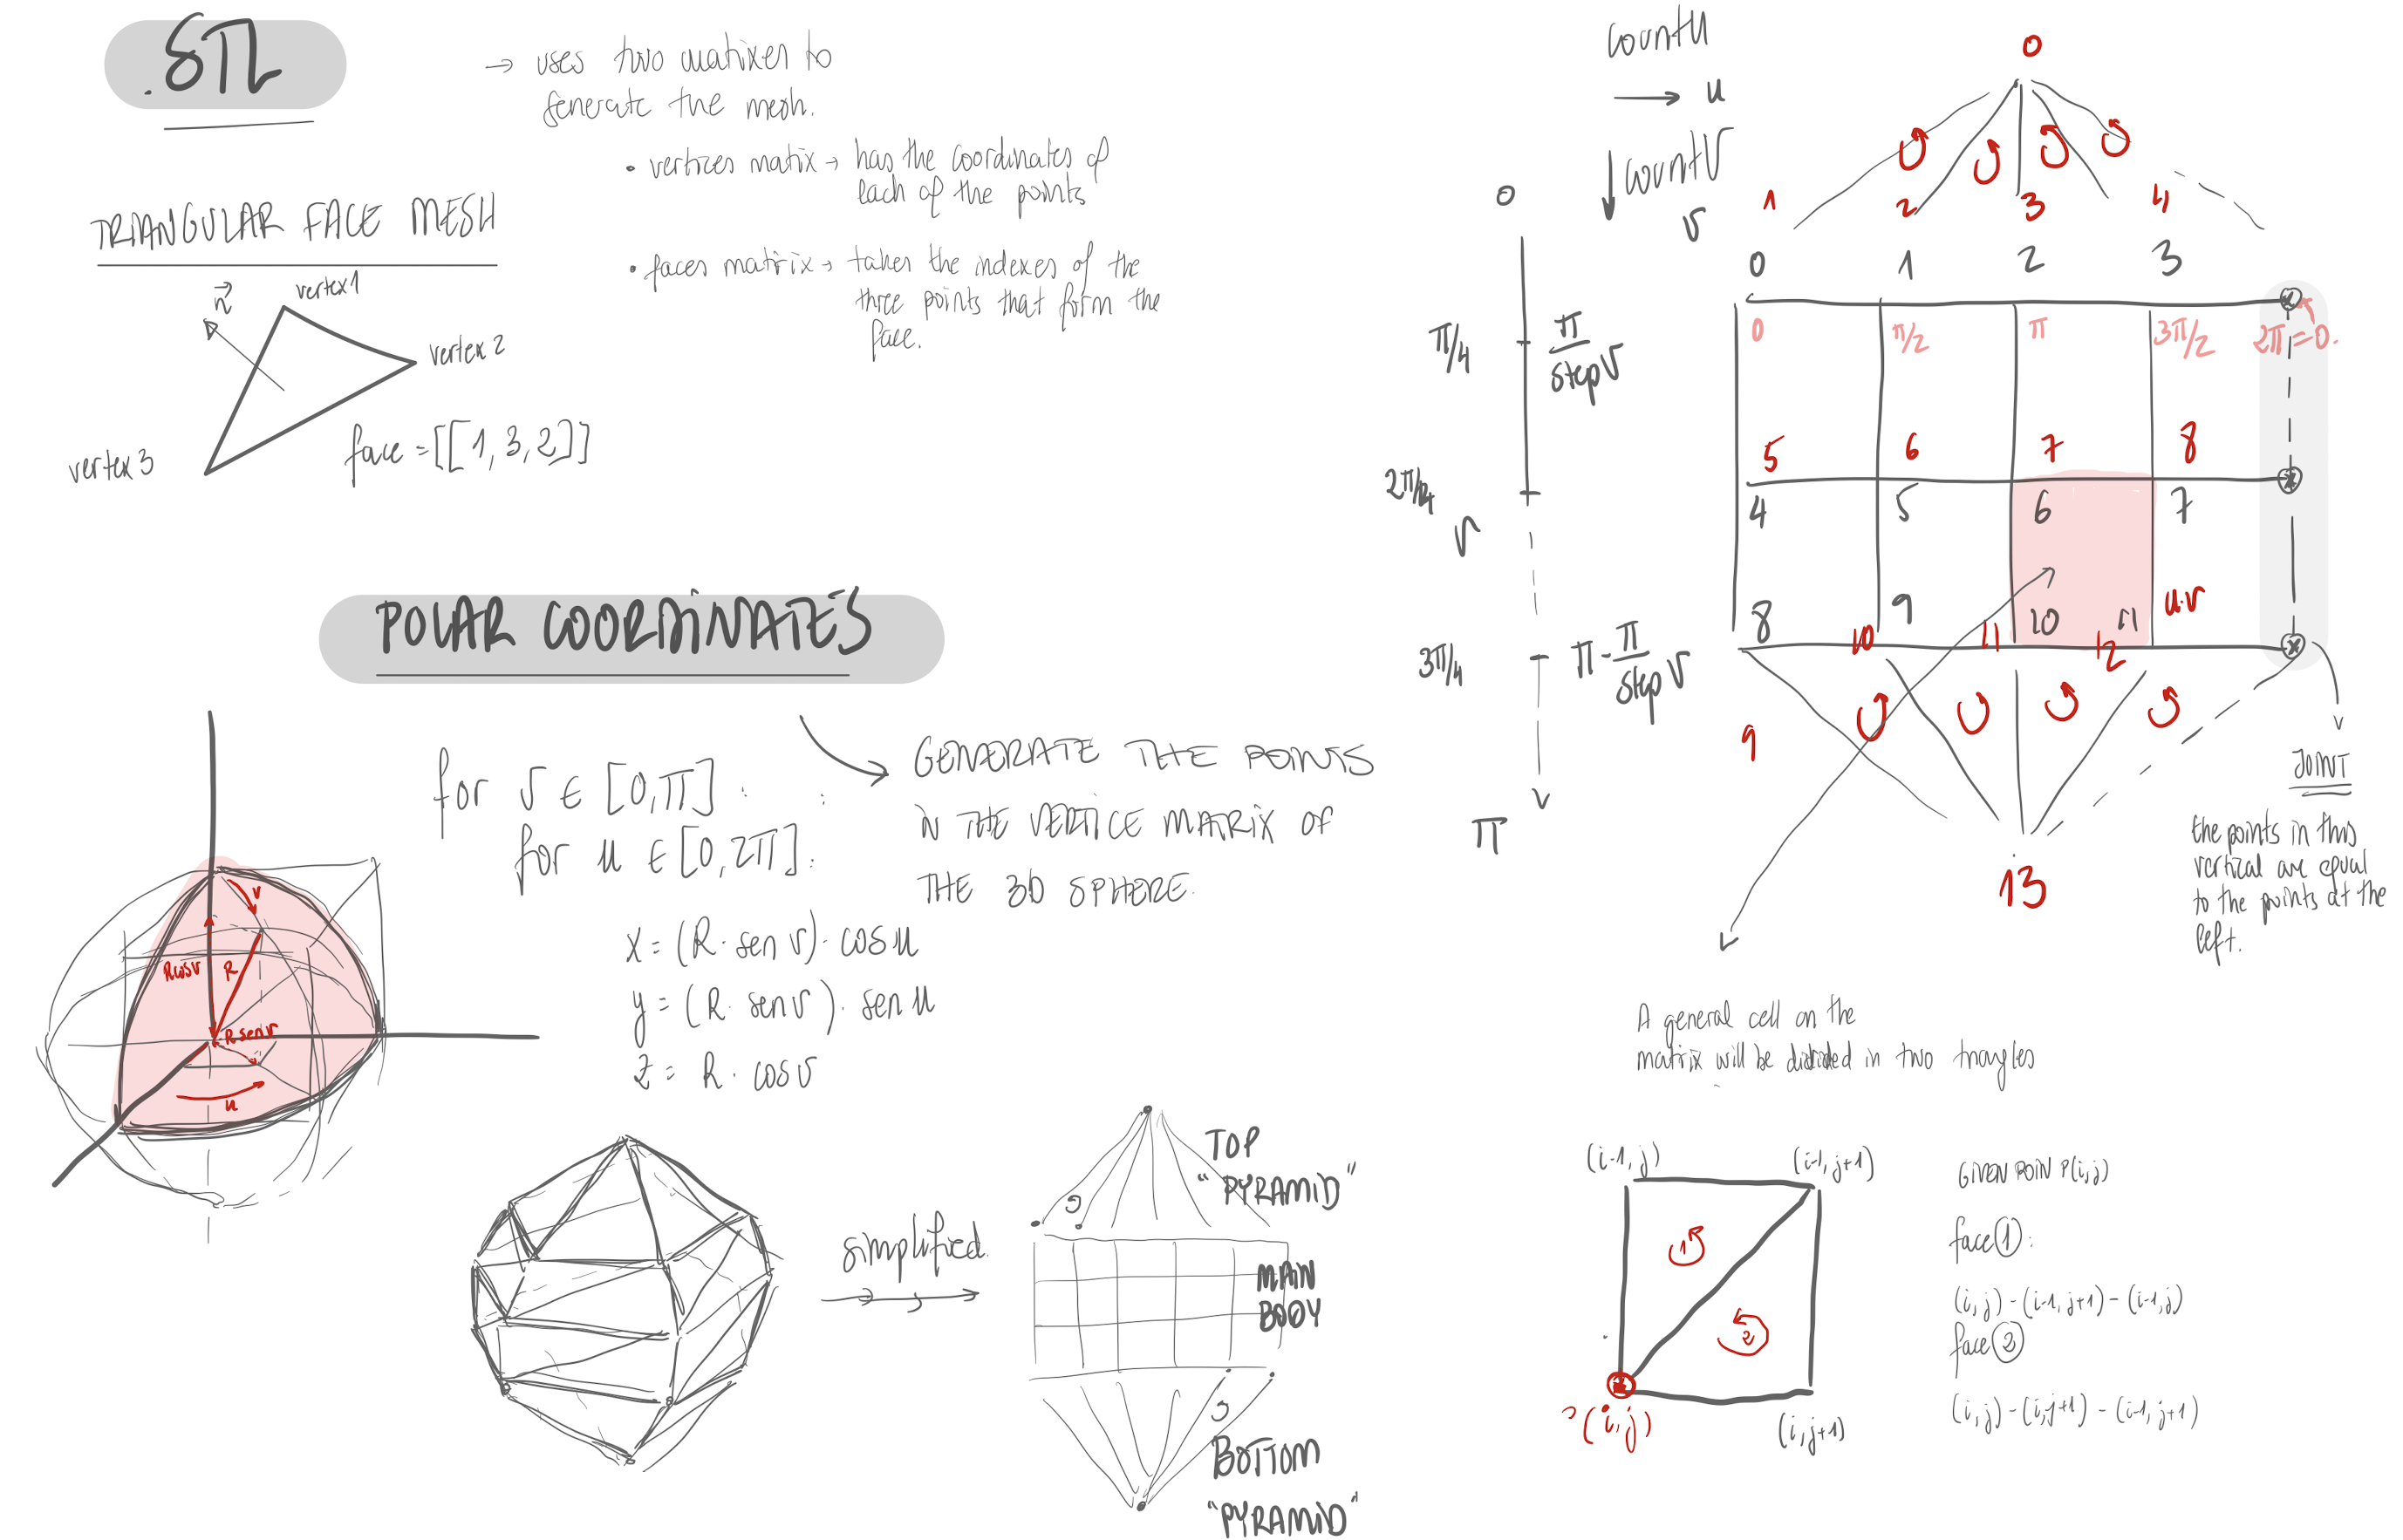 .STL
→ uses two matixes to
generate the mesh.
• vertices matix → has the coordinates of
each of the points
• faces matrix → takes the indexes of the
three points that form the
face.
TRIANGULAR FACE MESH
n
vertex 1
vertex 2
vertex 3
face = [[1, 3, 2]]
POLAR COORDINATES
for v ∈ [0, π] :
for u ∈ [0, 2π] :
GENERATE THE POINTS
IN THE VERTICE MATRIX OF
THE 3D SPHERE.
x = (R · sen v) · cos u
y = (R · sen v) · sen u
z = R · cos v
v
R cos v
R
R sen v
u
simplified
TOP
"PYRAMID"
MAIN
BODY
BOTTOM
"PYRAMID"
countU
→ u
↓ countV
v
0
π/4
π/stepV
2π/4
v
3π/4
π - π/stepV
π
0
1 2 3 4
0 1 2 3
0 π/2 π 3π/2 2π=0.
5 6 7 8
4 5 6 7
8 9 10 11 u·v
9 10 11 12
13
JOINT
the points in this
vertical are equal
to the points at the
left.
A general cell on the
matrix will be divided in two trayles
(i-1, j) (i-1, j+1)
1
2
(i, j)
(i, j+1)
GIVEN POIN P(i,j)
face 1 :
(i, j) - (i-1, j+1) - (i-1, j)
face 2
(i, j) - (i, j+1) - (i-1, j+1)